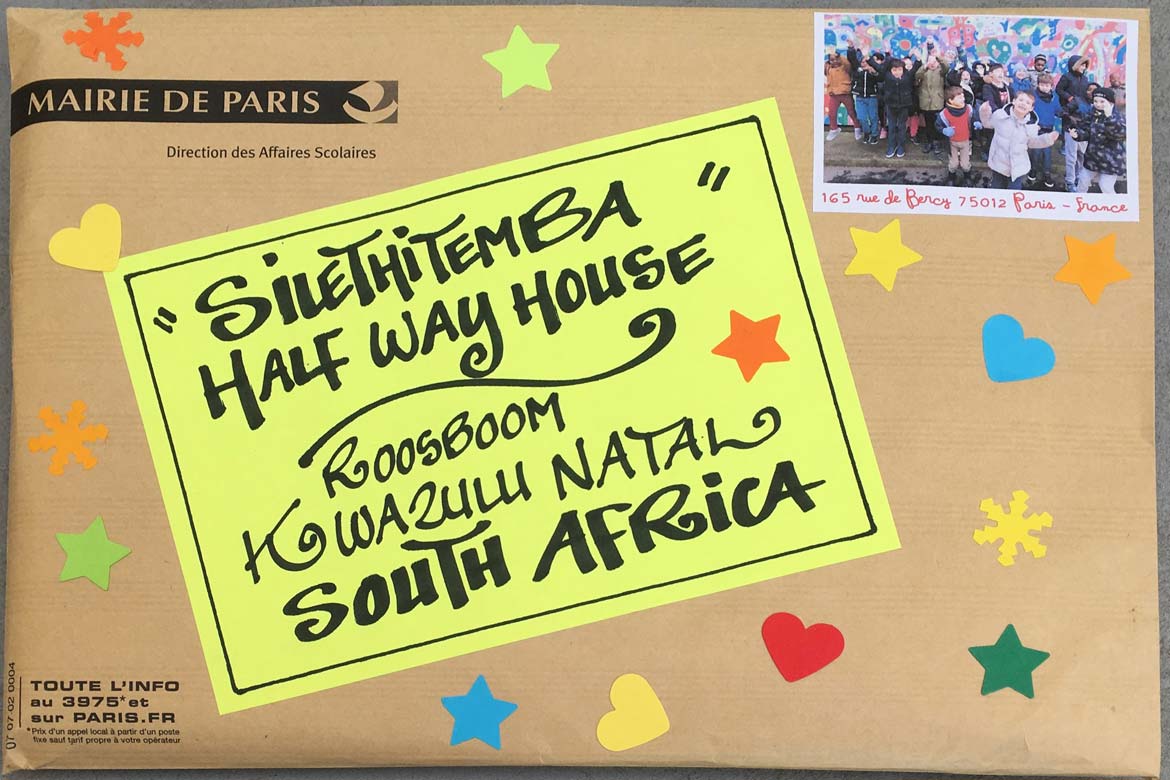 MAIRIE DE PARIS
Direction des Affaires Scolaires
165 rue de Bercy 75012 Paris - France
"SILETHITEMBA"
HALF WAY HOUSE
ROOSBOOM
KWAZULU NATAL
SOUTH AFRICA
07 07 02 0004
TOUTE L'INFO
au 3975* et
sur PARIS.FR
*Prix d'un appel local à partir d'un poste
fixe sauf tarif propre à votre opérateur